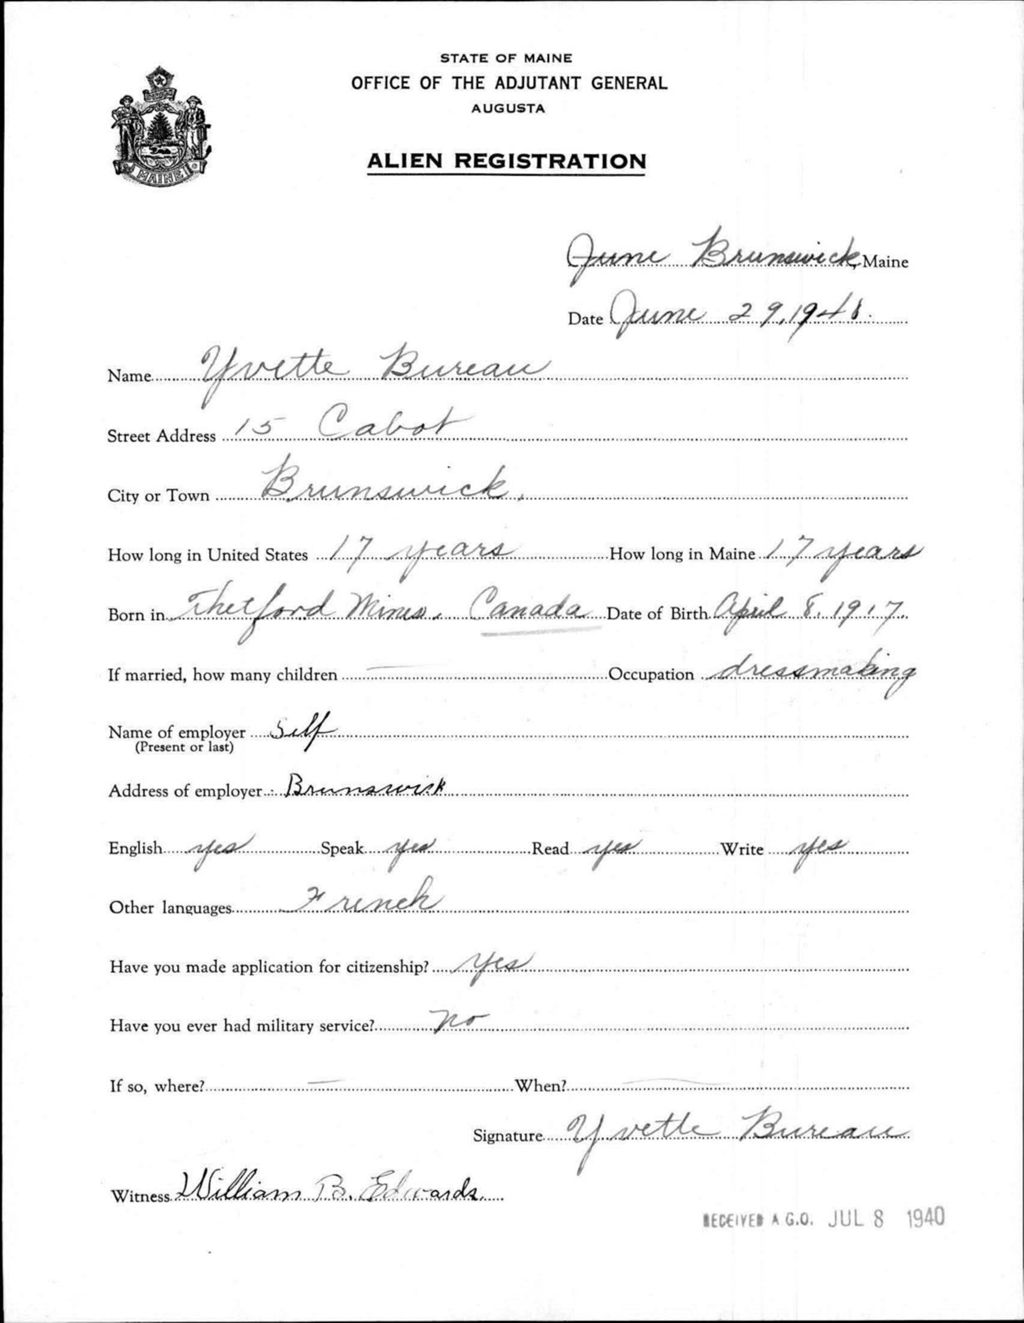 STATE OF MAINE
OFFICE OF THE ADJUTANT GENERAL
AUGUSTA
ALIEN REGISTRATION
MAINE
June Brunswick, Maine
Date June 29, 1940.
Name Yvette Bureau
Street Address 15 Cabot
City or Town Brunswick.
How long in United States 17 years How long in Maine 17 years
Born in Thetford Mines, Canada Date of Birth April 8, 1917.
If married, how many children — Occupation dressmaking
Name of employer Self
(Present or last)
Address of employer Brunswick
English yes Speak yes Read yes Write yes
Other languages French
Have you made application for citizenship? Yes
Have you ever had military service? no
If so, where? — When? —
Signature Yvette Bureau
Witness William B. Edwards
RECEIVED A.G.O. JUL 8 1940